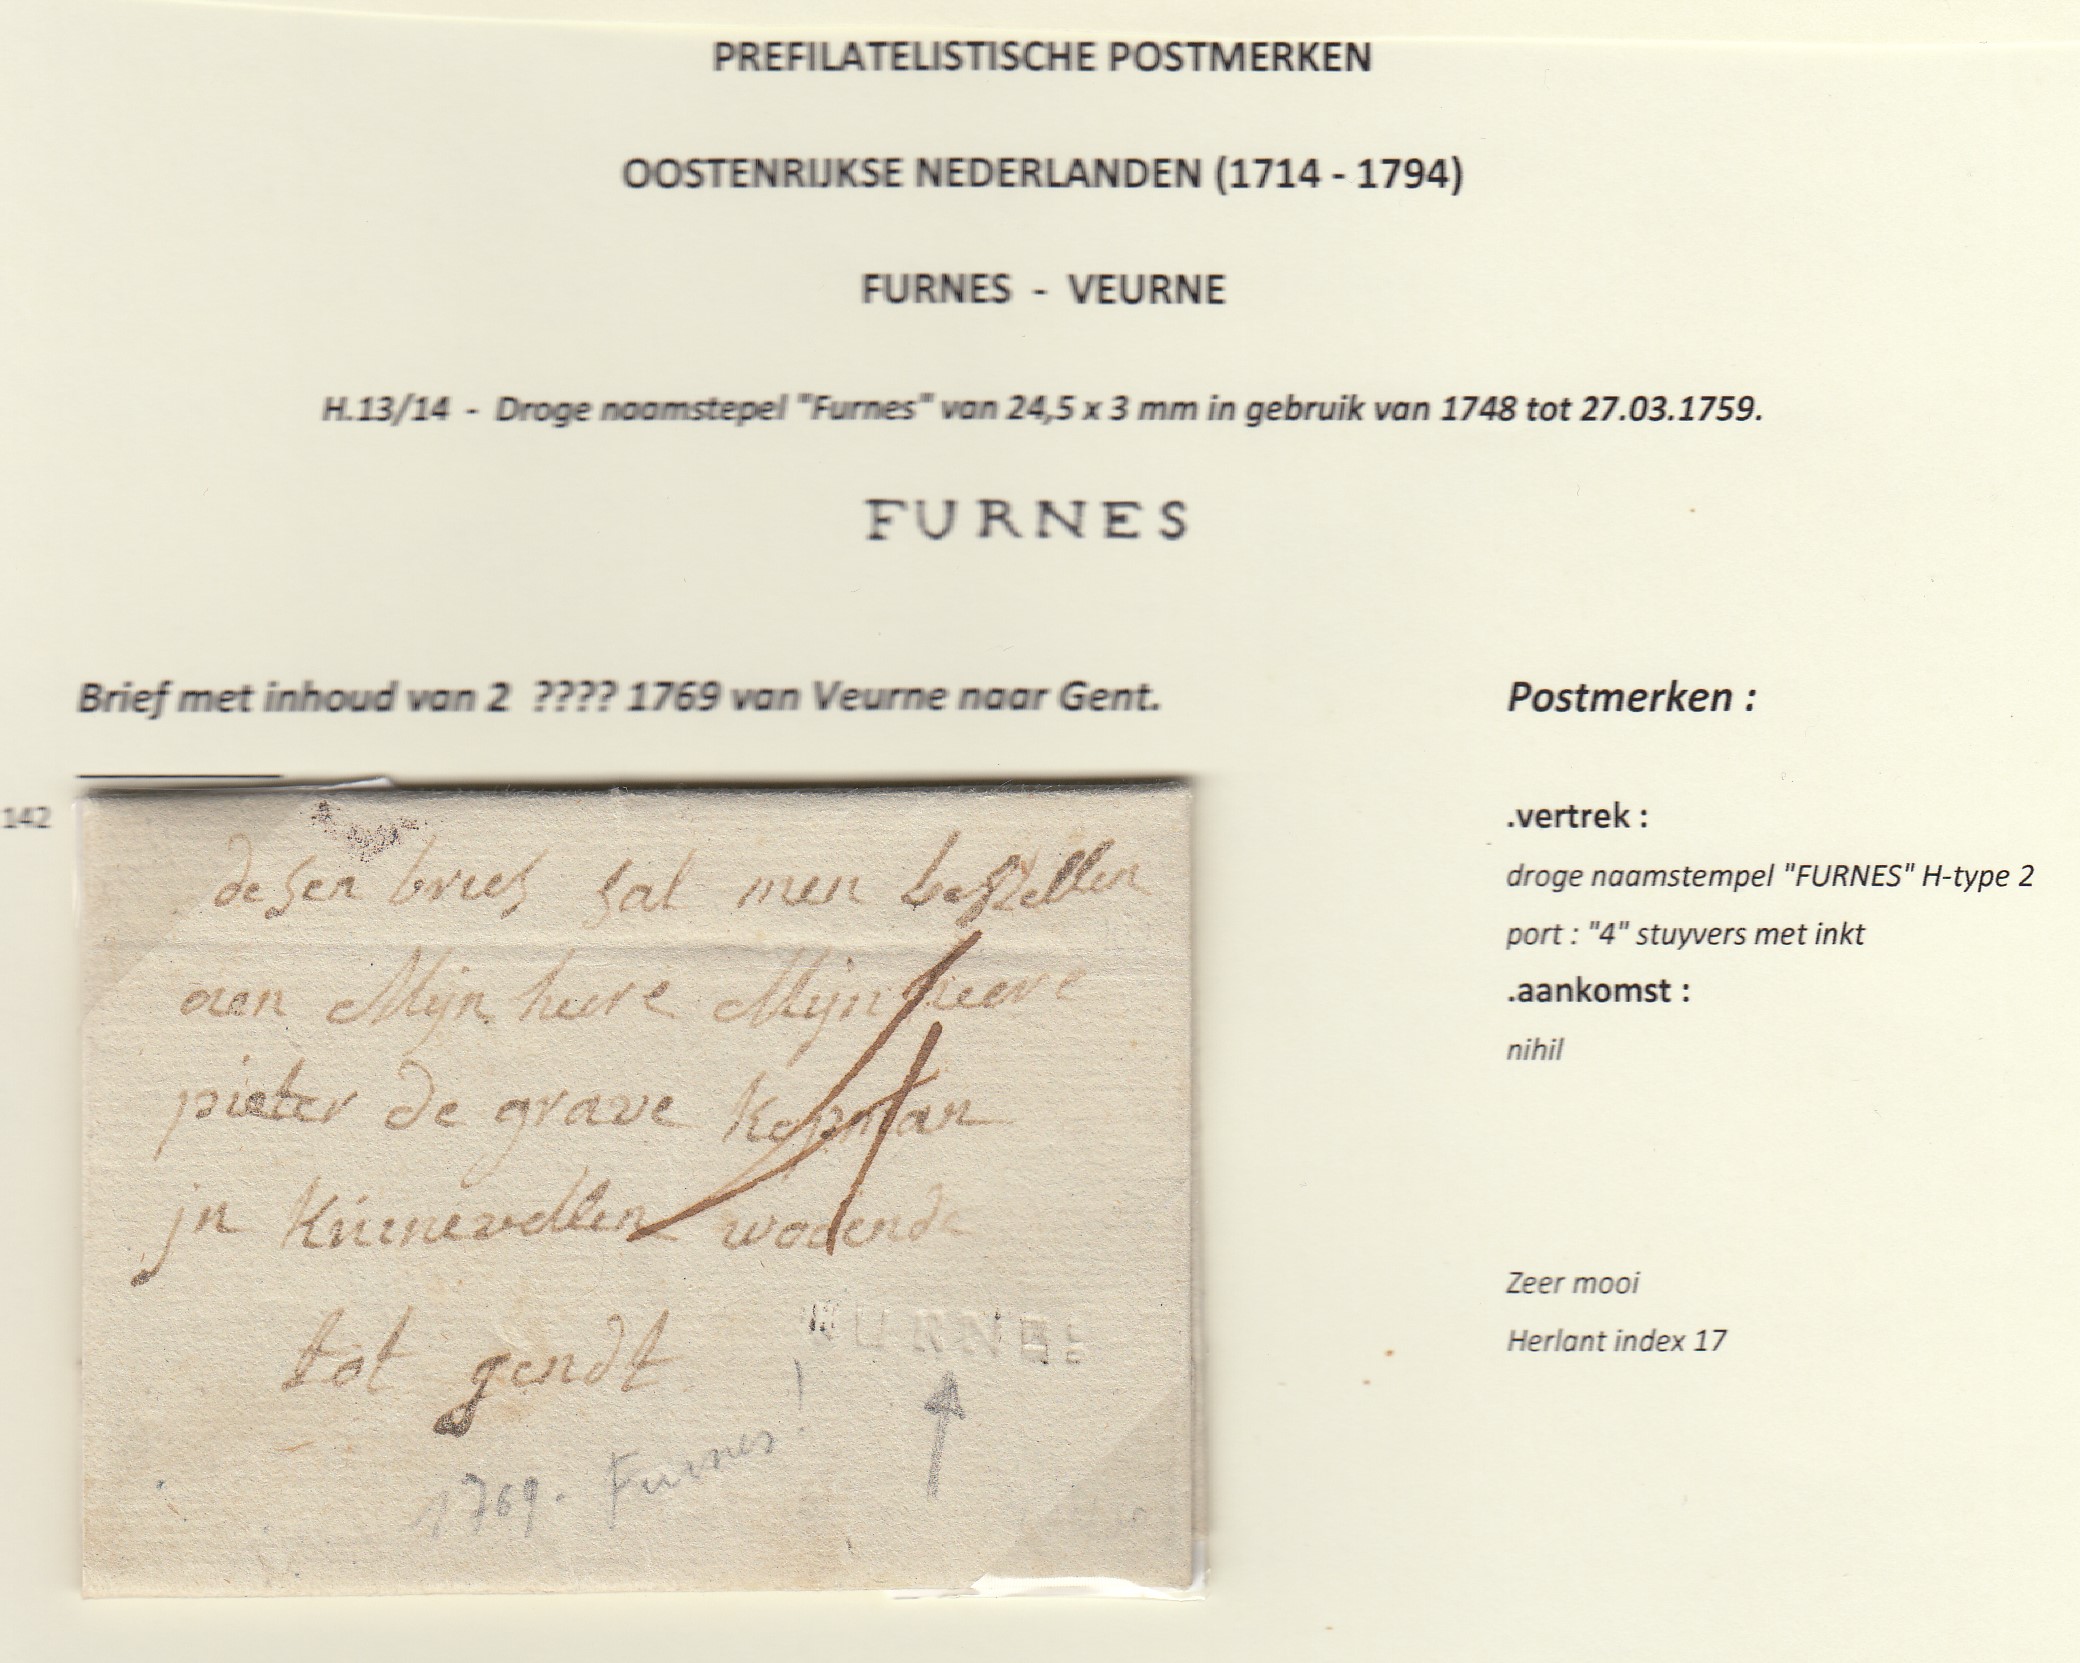 PREFILATELISTISCHE POSTMERKEN
OOSTENRIJKSE NEDERLANDEN (1714 - 1794)
FURNES - VEURNE
H.13/14 - Droge naamstepel "Furnes" van 24,5 x 3 mm in gebruik van 1748 tot 27.03.1759.
FURNES
Brief met inhoud van 2 ???? 1769 van Veurne naar Gent.
142
desen brief sal men bestellen
aen Mijn heere Mijn heere
pieter de grave Kopman
jn woenende
tot gendt
4
FURNES
1769. Furnes!
Postmerken :
.vertrek :
droge naamstempel "FURNES" H-type 2
port : "4" stuyvers met inkt
.aankomst :
nihil
Zeer mooi
Herlant index 17